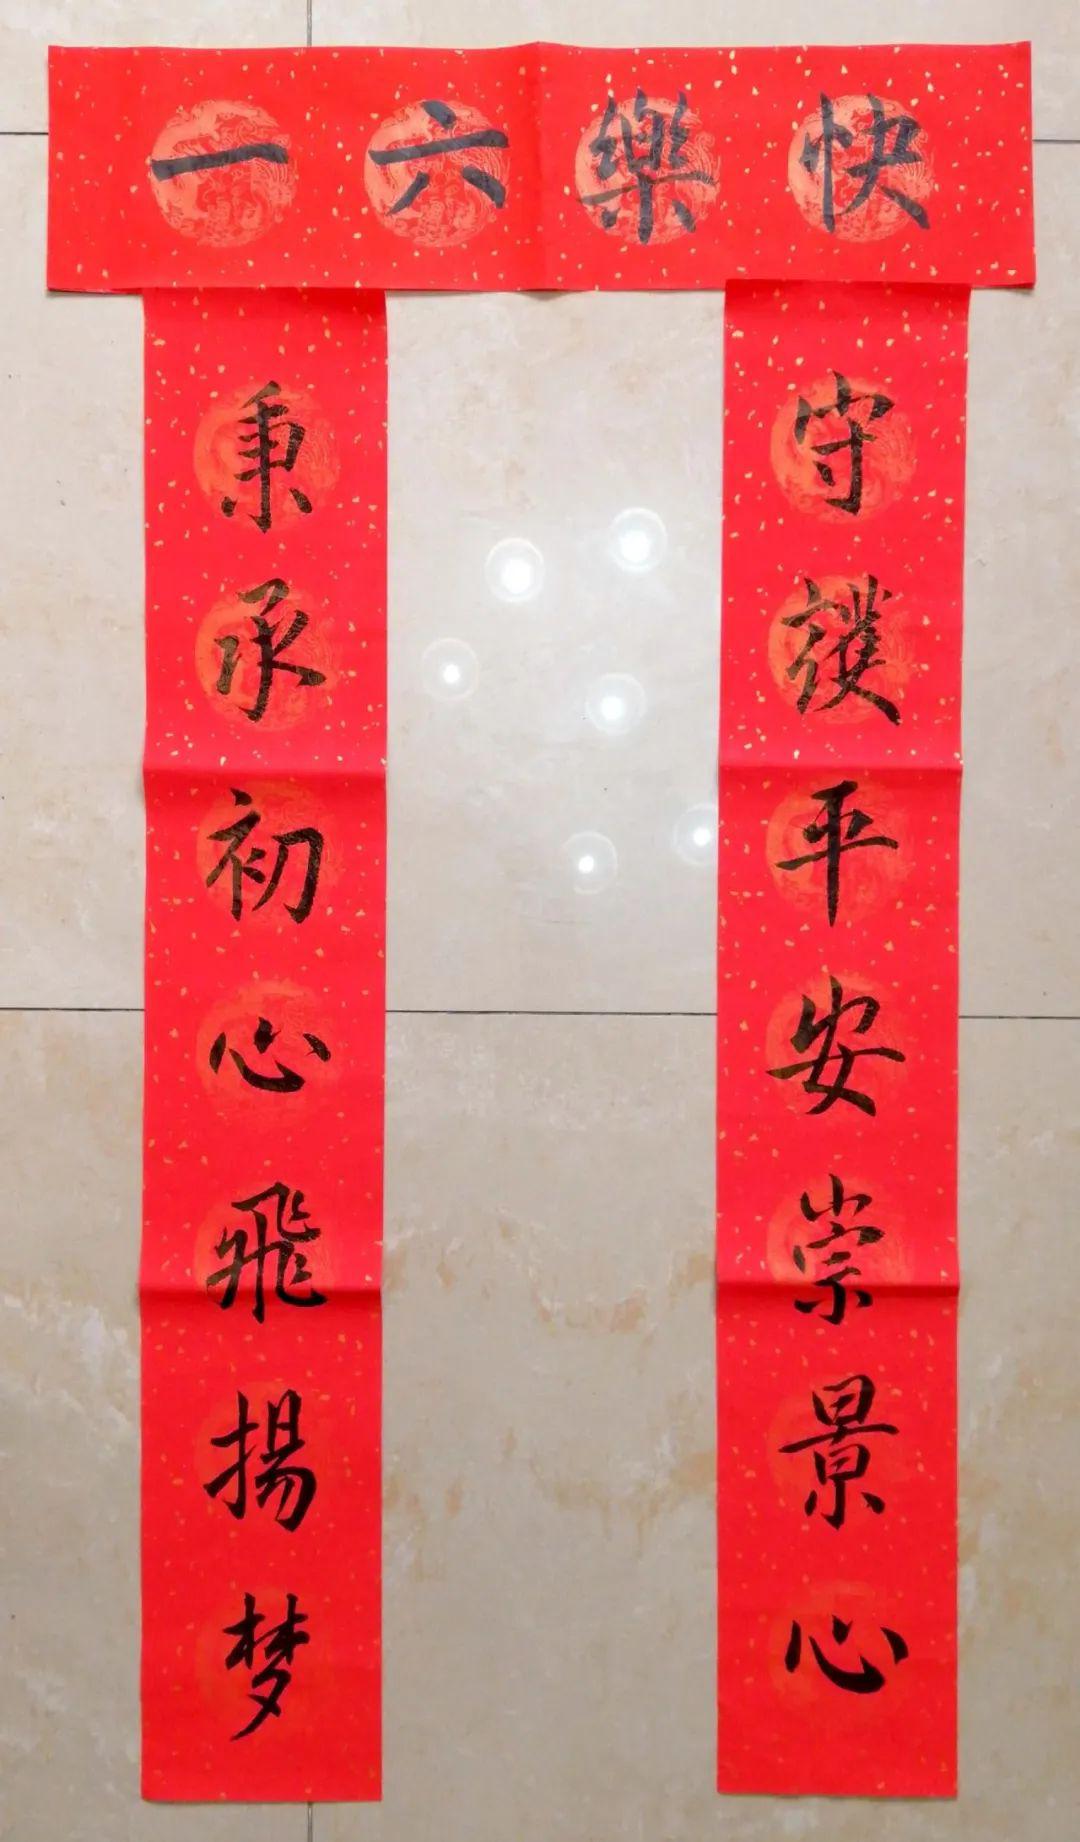 快樂六一
守護平安崇景心
秉承初心飛揚梦